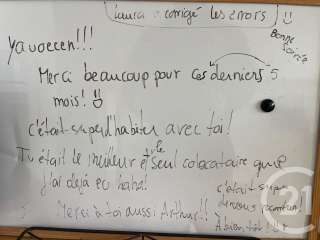 (Laura a corrigé les errors) :)
Bonne
Soirée
Yavoecen!!!
Merci beaucoup pour ces derniers 5
mois! :)
c'était super d'habiter avec toi!
Tu était le meilleur et le seul colocataire que
j'ai déjà eu haha!
Merci à toi aussi Arthur!!
c'était super
A bientôt!!
21